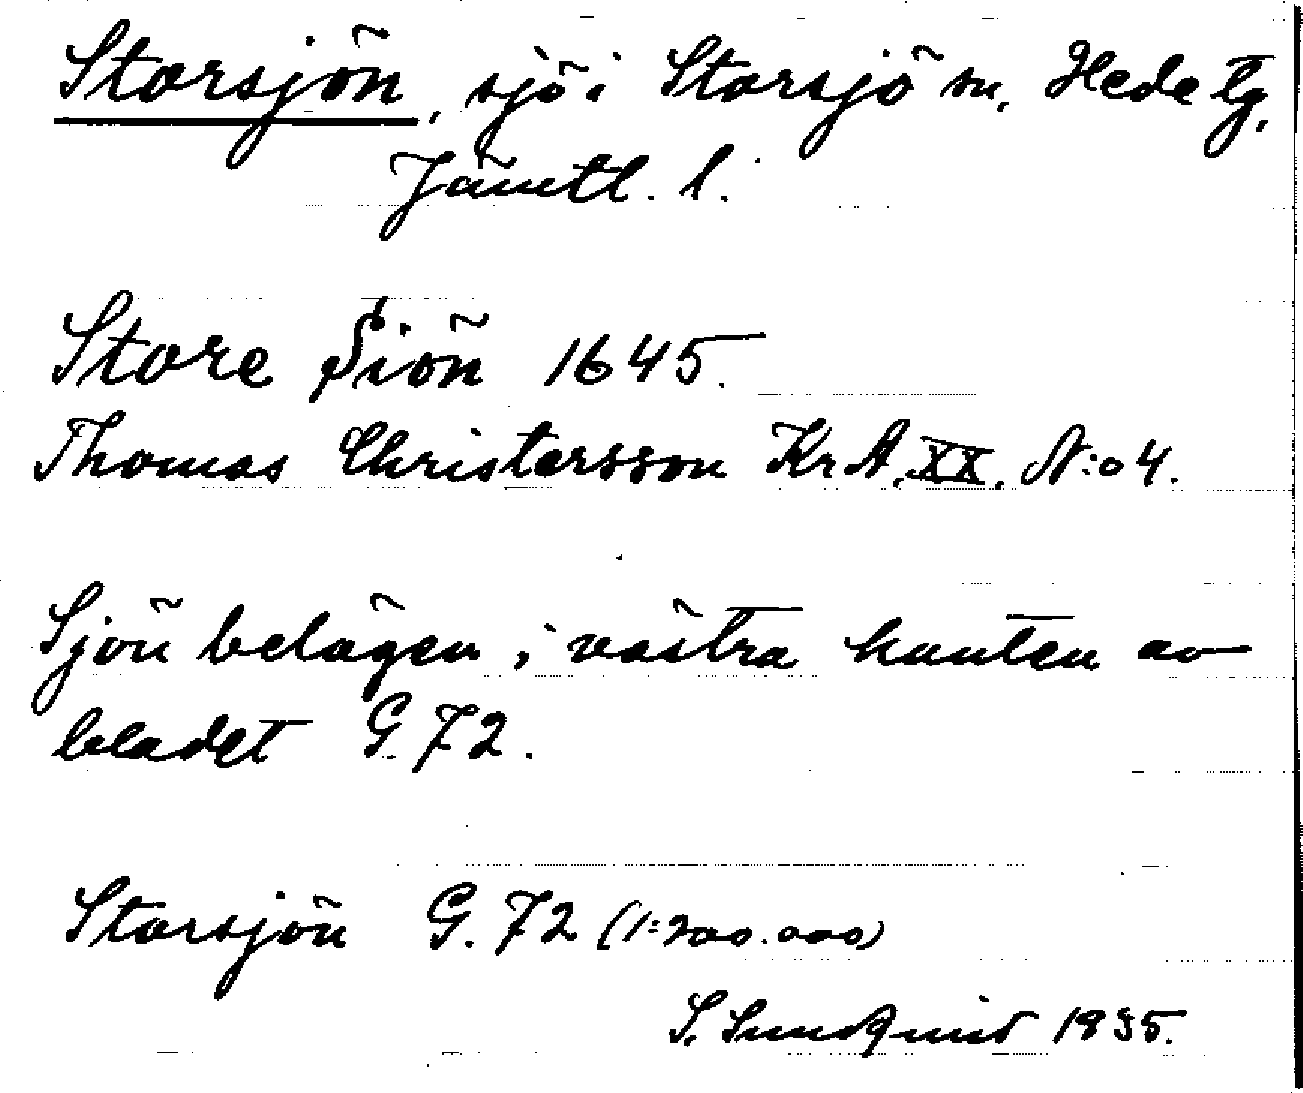 Storsjön, sjö i Storsjö sn, Hede tg,
Jämtl. l.
Store Siön 1645.
Thomas Christersson KrA. XX. N:o 4.
Sjön belägen i västra kanten av
bladet G. 72.
Storsjön G. 72 (1:200.000)
S. Sundquist 1935.